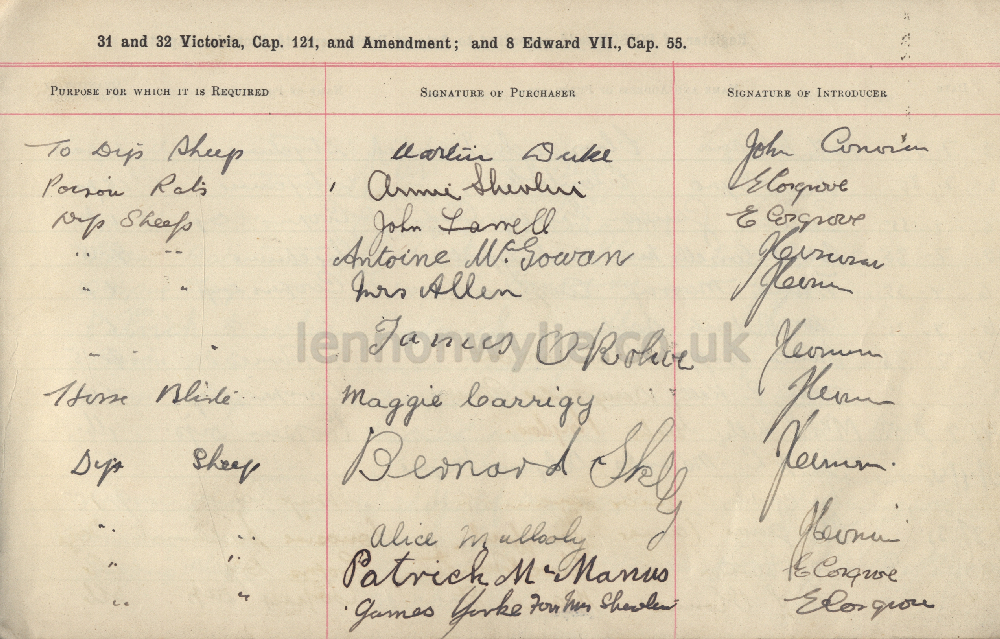 31 and 32 Victoria, Cap. 121, and Amendment; and 8 Edward VII., Cap. 55.
Purpose for which it is Required Signature of Purchaser Signature of Introducer
To Dip Sheep Martin Duke John
Poison Rats Annie Shevlin E Cosgrove
Dip Sheep John Farrell E Cosgrove
" " Antoine McGowan
" " Mrs Allen
lennonwylie.co.uk
" " James O Rourke
Horse Maggie Carrigy
Dip Sheep Bernard Skelly
" " Alice Mulloly
" " Patrick McManus E Cosgrove
" " James Yorke For Mrs Shevlin E Cosgrove